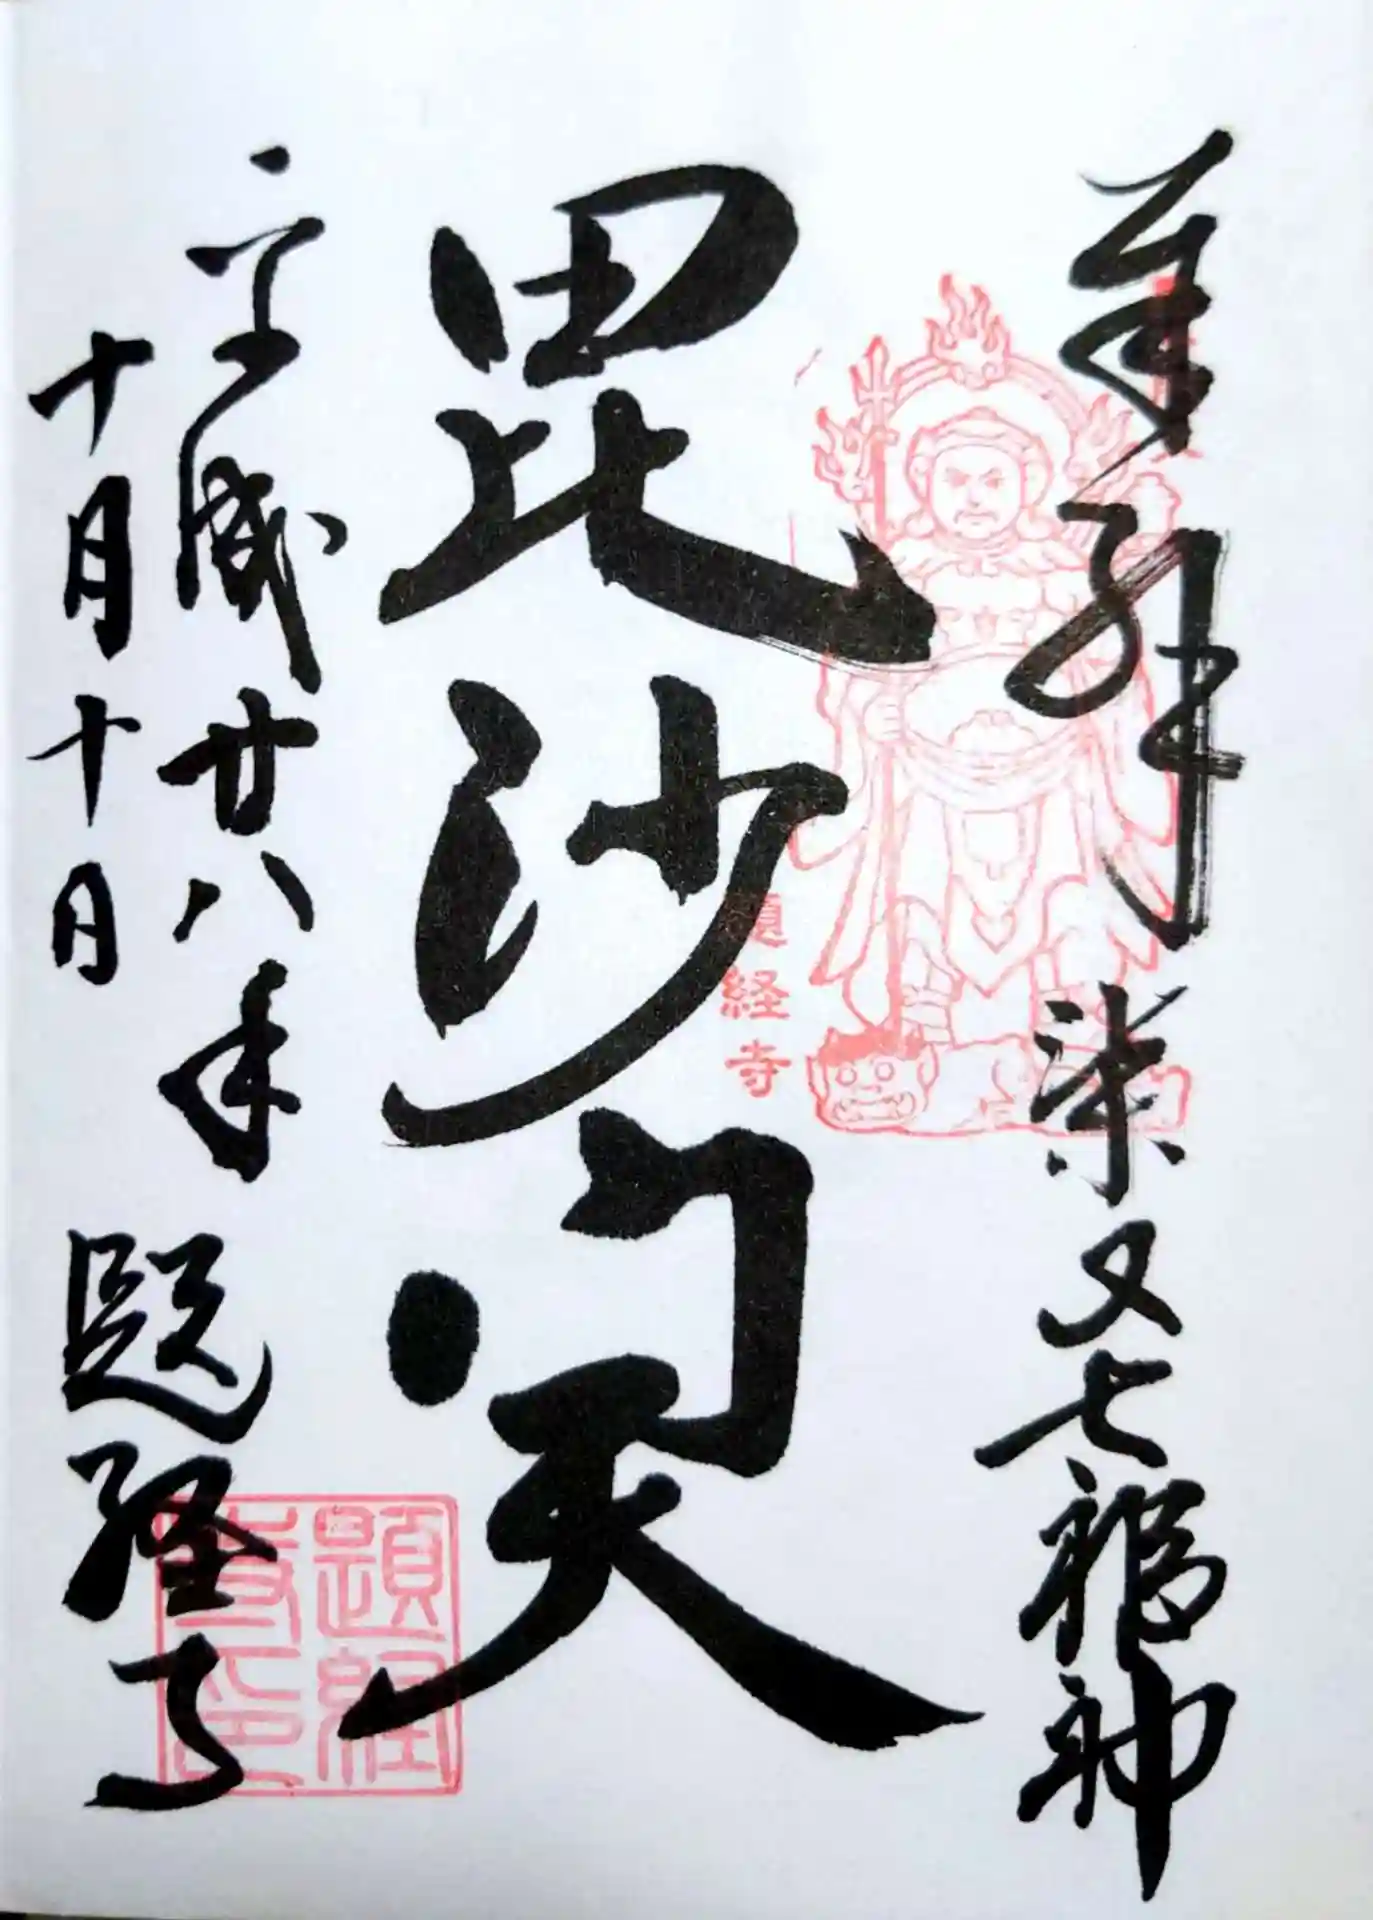 奉拝 柴又七福神
毘沙門天
題経寺
平成廿八年 題経寺
十月十日
題経寺印